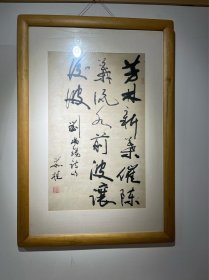 芳林新葉催陳
葉流水前波讓
後波
劉禹錫詩句